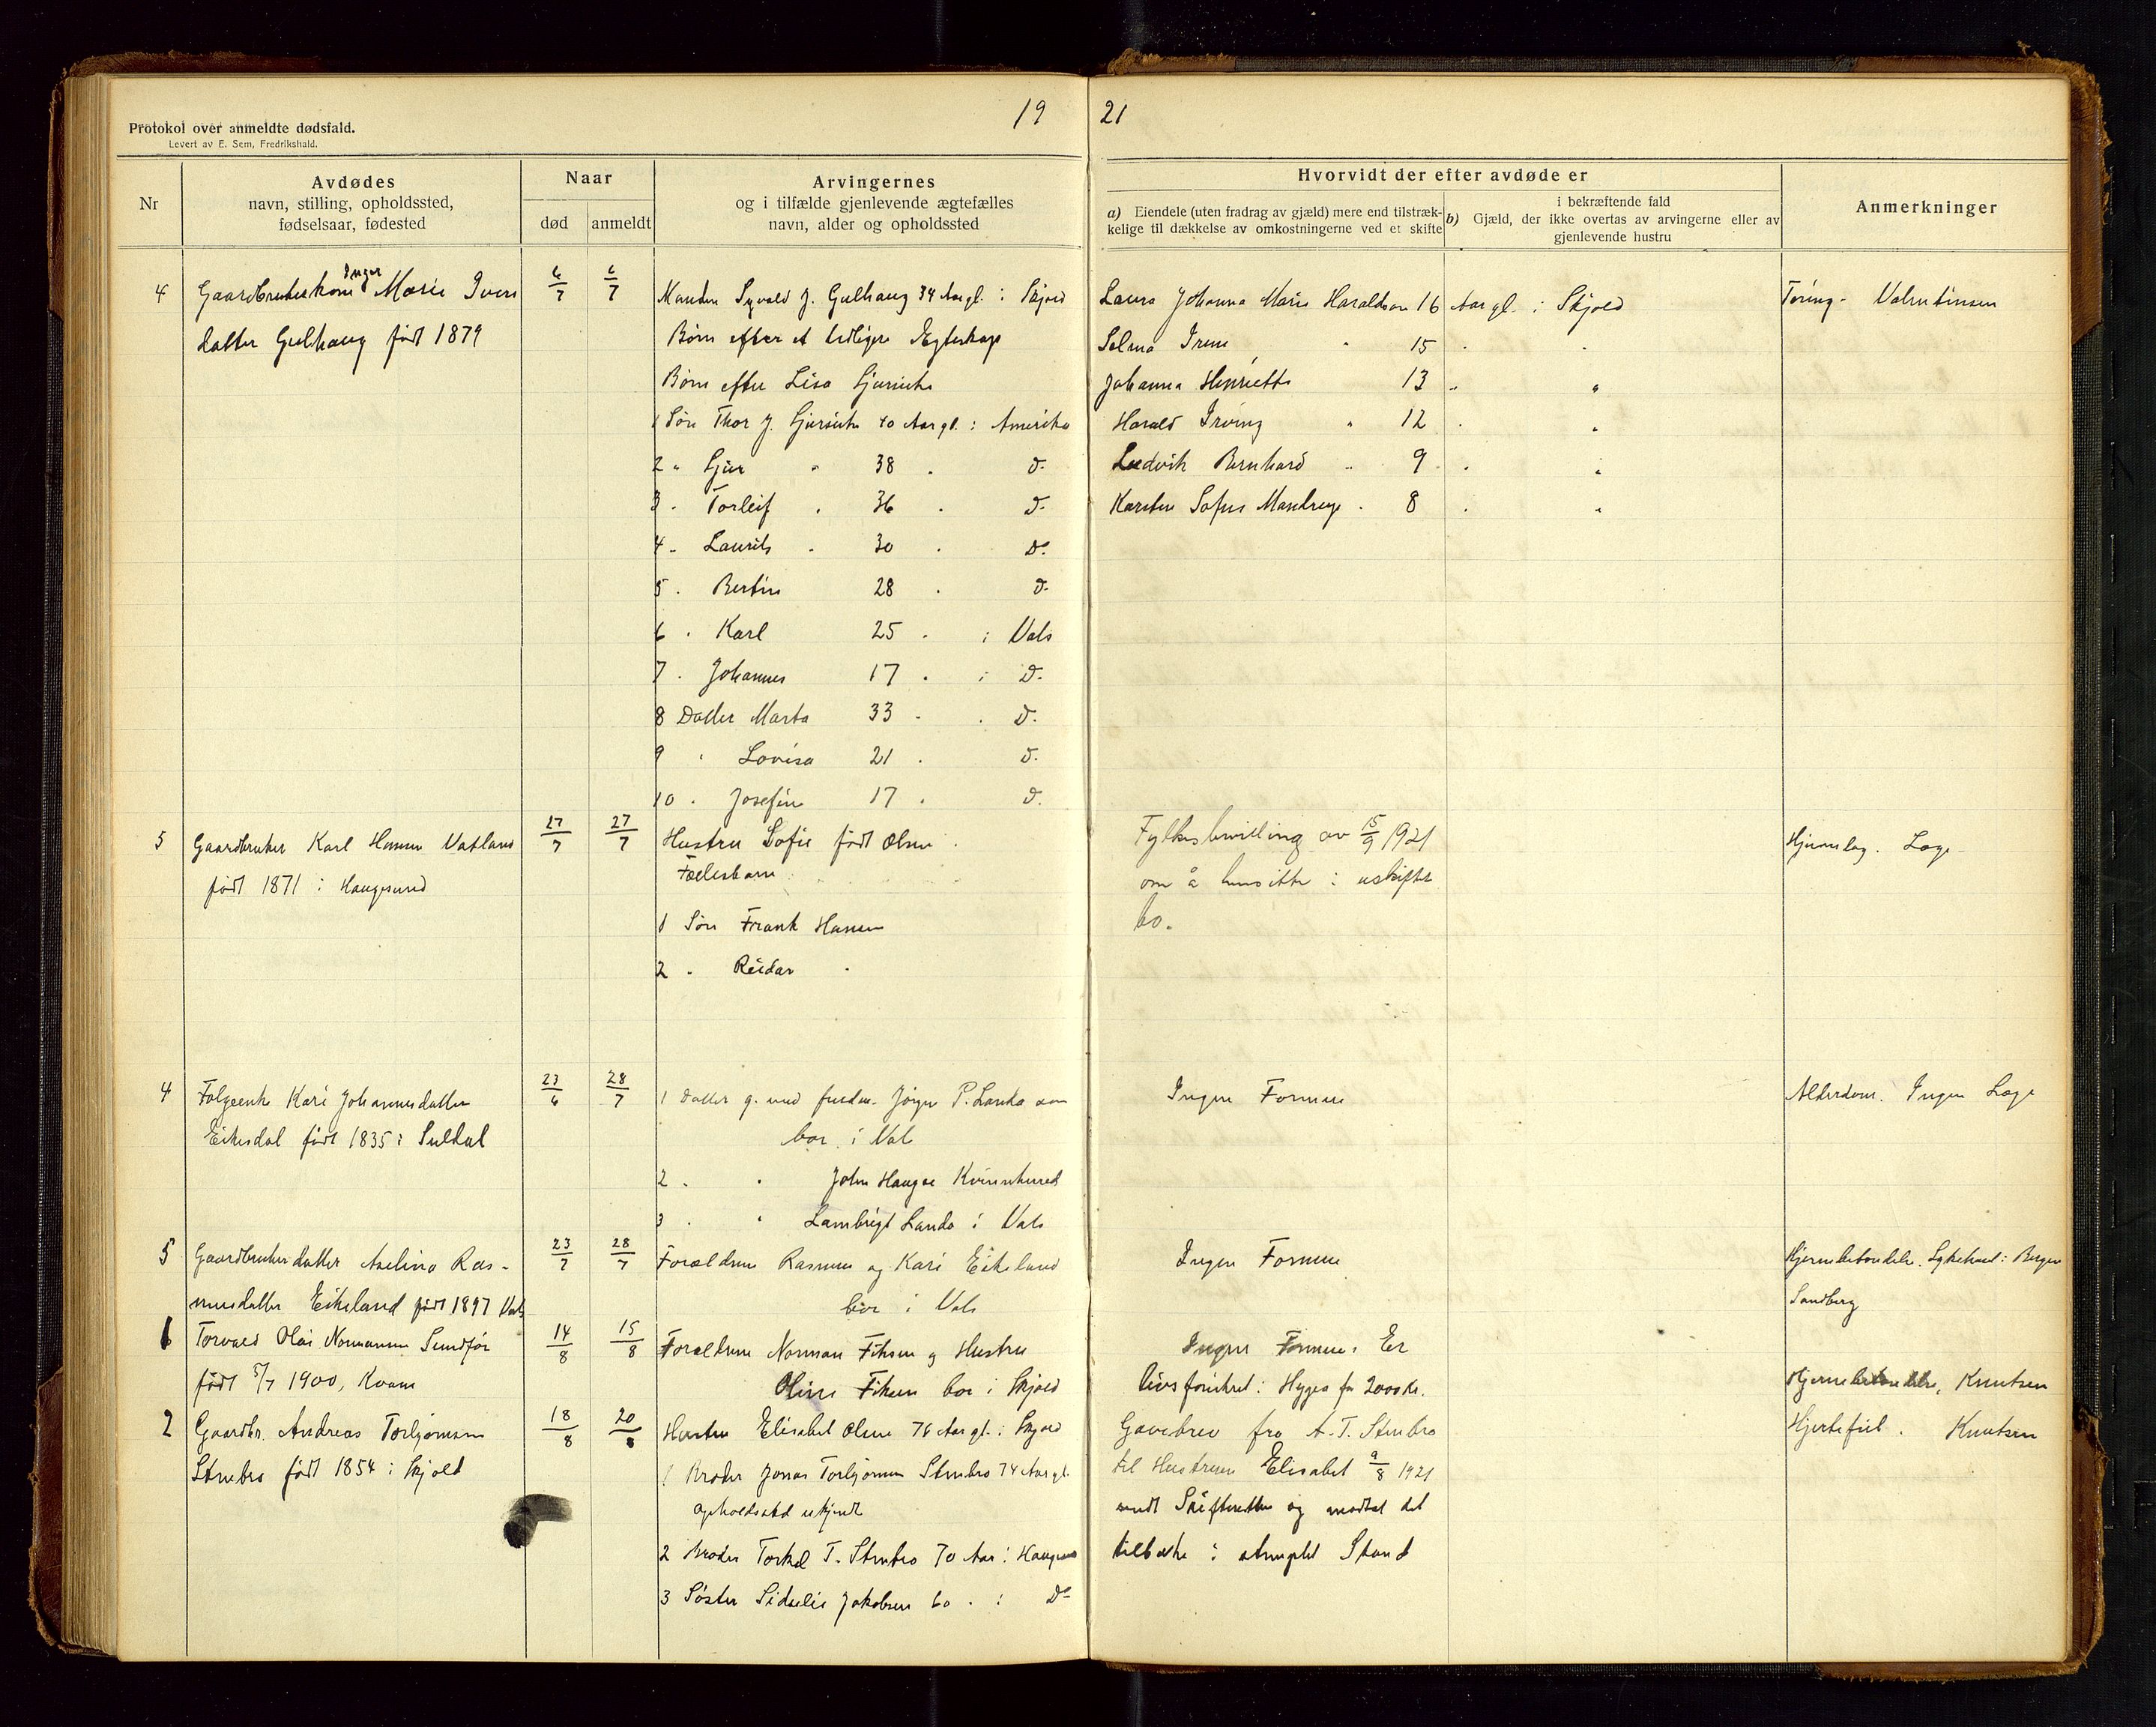 19 21
Protokol over anmeldte dødsfald.
Levert av E. Sem, Fredrikshald.
Nr
Avdødes
navn, stilling, opholdssted,
fødselsaar, fødested
Naar
død
anmeldt
Arvingernes
og i tilfælde gjenlevende ægtefælles
navn, alder og opholdssted
Hvorvidt der efter avdøde er
a) Eiendele (uten fradrag av gjæld) mere end tilstræk-
kelige til dækkelse av omkostningerne ved et skifte
i bekræftende fald
b) Gjæld, der ikke overtas av arvingerne eller av
gjenlevende hustru
Anmerkninger
4 Gaardbrukerkone Inger Marie Ivers
datter Gulhaug født 1879
6/7 6/7
Manden Syvald J. Gulhaug 34 Aar gl. i Skjold
Børn efter et tidligere Egteskap
Børn efter Lisa
1 Søn Thor J. 40 Aar gl. i Amerika
2 " " 38 " Do
3 " Torleif " 36 " Do
4 " Laurits " 30 " Do
5 " Bertin 28 " Do
6 " Karl 25 " i Vats
7 " Johannes 17 " i Do
8 Datter Marta 33 " " Do
9 " Lovisa 21 " Do
10 " Josefine 17 " Do
Laura Johanna Marie Haraldsen 16 Aar gl. i Skjold
Selma Irene " 15 " "
Johanna Henriette 13 " "
Harald Irving " 12 " "
Ludvik Bernhard " 9 " "
Karsten Sofus " 8 " "
Tæring. Valentinsen
5 Gaardbruker Karl Hansen Vatland
født 1871 i Haugesund
27/7 27/7
Hustru Sofie født Olsen
Fællesbarn
1 Søn Frank Hansen
2 " Reidar "
Fylkesbevilling av 15/9 1921
om å hensitte i uskiftet
bo.
Hjerneslag. Læge
4 Folgeenke Kari Johannesdatter
Eikesdal født 1835 i Suldal
23/6 28/7
1 Datter g. med Jørgen P. Landa som
bor i Vats
2 " " John Hauge Kvinnherred
3 " " Lambrigt Landa i Vats
Ingen Formue
Alderdom. Ingen Læge
5 Gaardbrukerdatter Axelina Ras-
musdatter Eikeland født 1897 Vats
23/7 28/7
Forældrene Rasmus og Kari Eikeland
bor i Vats
Ingen Formue
Hjernebetændelse. Sykehuset i Bergen
Sandberg
6 Torvald Olai Normansen Sundfør
født 5/7 1900, Kvam
14/8 15/8
Forældrene Norman Eiksen og Hustru
Oline Eiksen bor i Skjold
Ingen Formue. Er
livsforsikret i Hygea for 2000 Kr.
Hjernebetændelse, Knutsen
2 Gaardbr. Andreas Torbjørnsen
Stenbro født 1854 i Skjold
18/8 20/8
Hustru Elisabet Olsen 76 Aar gl. i Skjold
1 Broder Jonas Torbjørnsen Stenbro 74 Aar gl.
opholdssted ukjendt
2 Broder Torkel T. Stenbro 70 Aar i Haugesund
3 Søster Sidselie Jakobsen 60 " i Do
Gavebrev fra A. T. Stenbro
til Hustruen Elisabet 9/8 1921
sendt Skifteretten og mottat det
tilbake i stemplet Stand
Hjertefeil. Knutsen